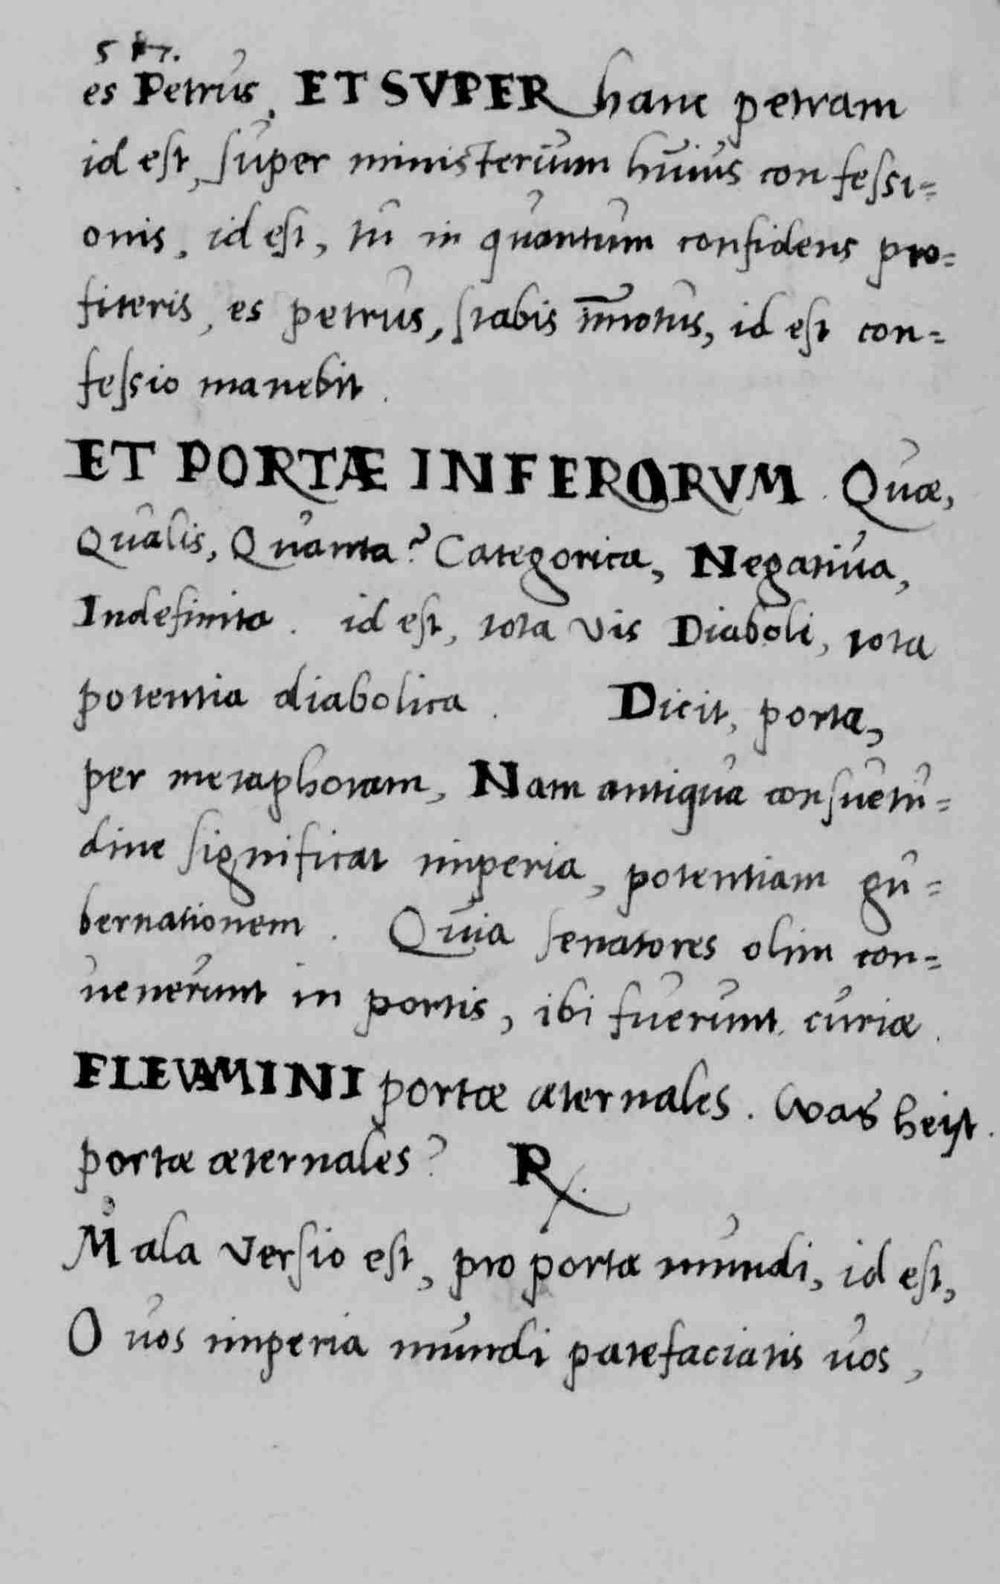 587.
es Petrus. ET SVPER hanc petram
id est, super ministerium huius confessi=
onis, id est, tu in quantum confidens pro=
fiteris, es petrus, stabis im̄motus, id est con=
fessio manebit.
ET PORTÆ INFERORVM. Quæ,
Qualis, Quanta? Categorica, Negatiua,
Indefinita. id est, tota vis Diaboli, tota
potentia diabolica. Dicit, portæ,
per metaphoram, Nam antiqua consuetu=
dine significat imperia, potentiam gu=
bernationem. Quia senatores olim con=
uenerunt in portis, ibi fuerunt curiæ.
ELEVAMINI portæ æternales. Was heist
portæ æternales? R.
Mala versio est, pro portæ mundi, id est,
O uos imperia mundi patefaciatis uos,